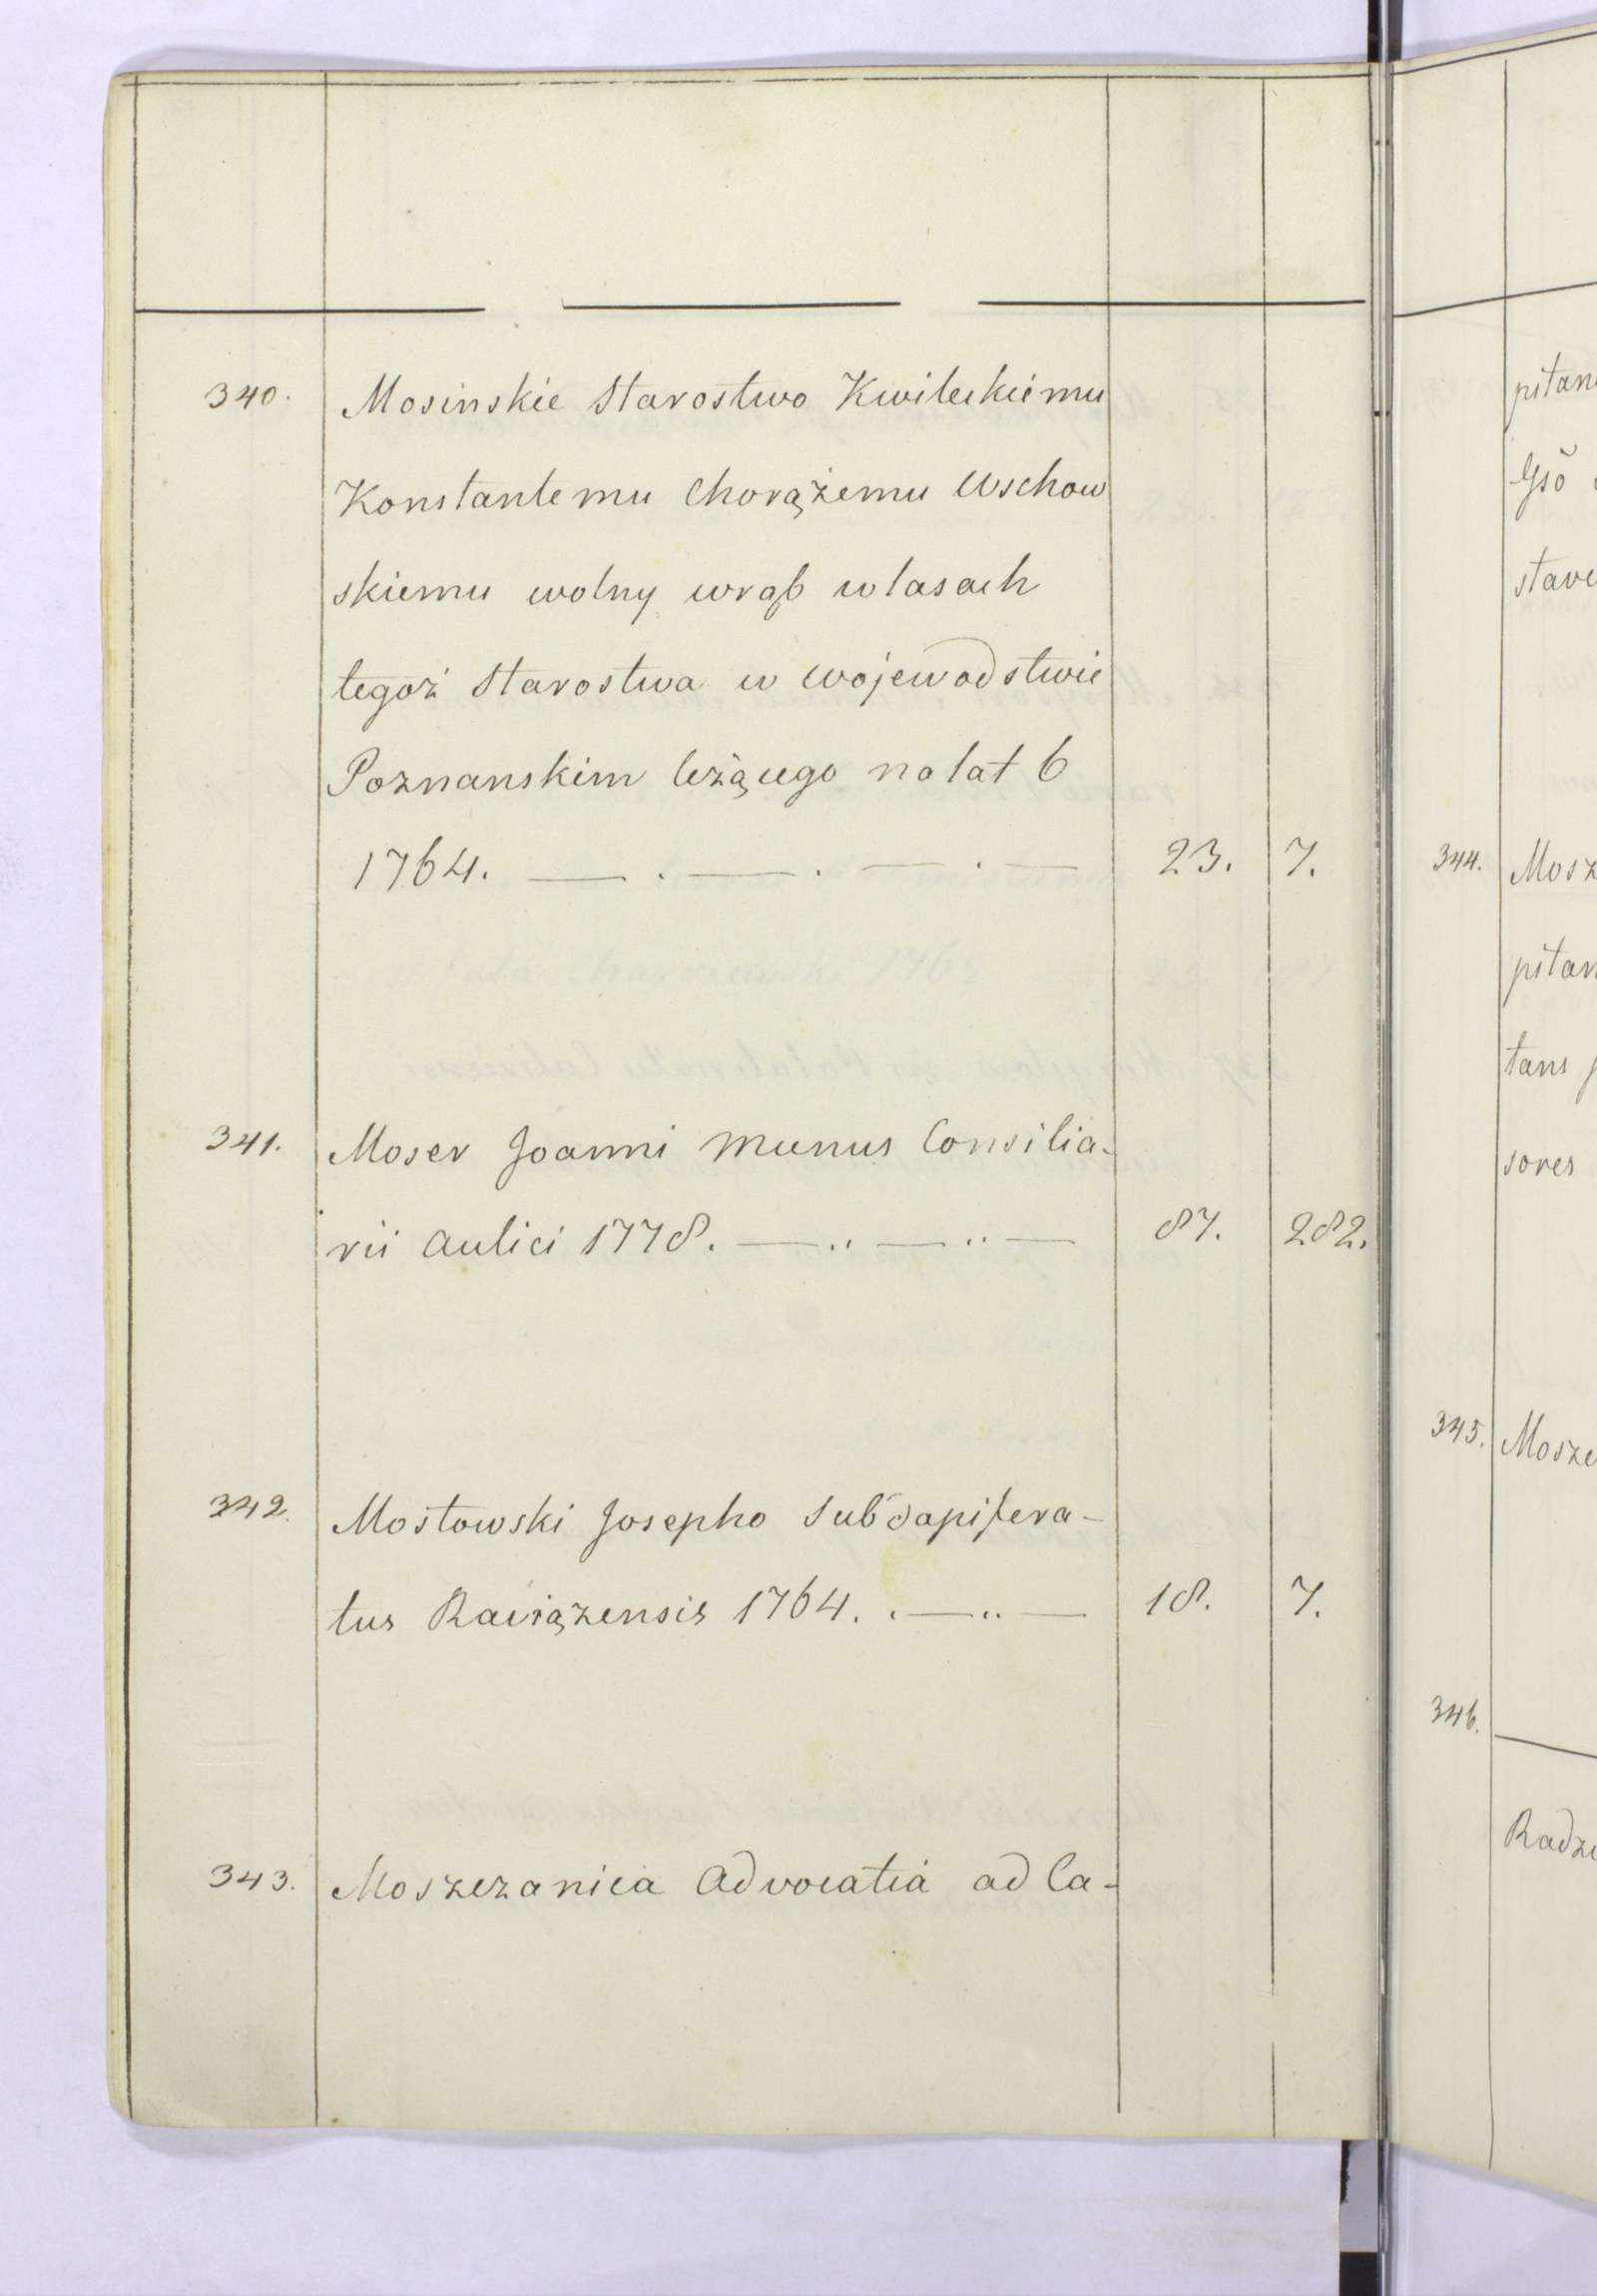 340. Mosinskie Starostwo Kwileckiemu
Konstantemu Chorążemu Wschow
skiemu wolny wrąb w lasach
tegoż Starostwa w Wojewodstwie
Poznanskim leżącego na lat 6
1764. — . — . — . — 23. 7.
341. Moser Joanni Munus Consilia-
rii Aulici 1778. — .. — .. — 87. 282.
342. Mostowski Josepho Subdapifera-
tus Raciązensis 1764. . — .. — 18. 7.
343. Moszczanica Advocatia ad Ca-
pitan
Gsõ
stare
344. Mosz
pitan
tans
sores
345. Mosze
346. —
Radze